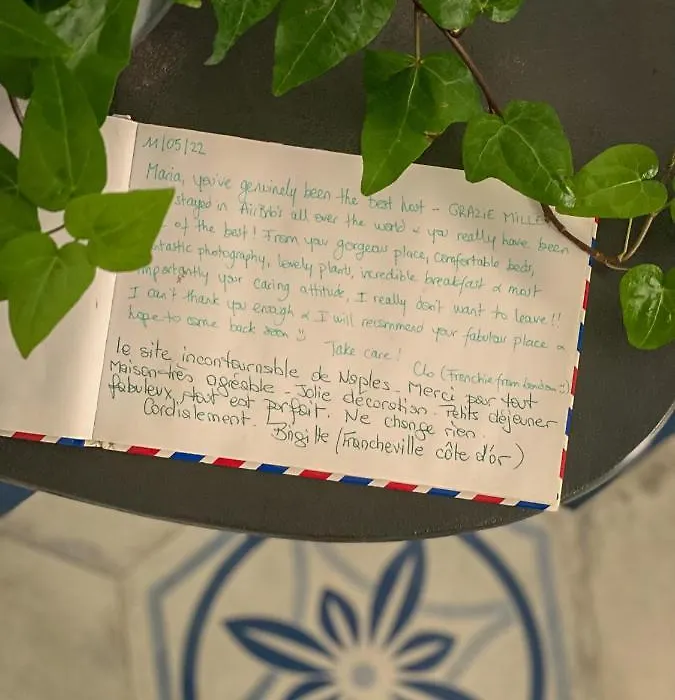 11/05/22
Maria, you've genuinely been the best host - GRAZIE MILLE
stayed in AirBnb's all over the world & you really have been
of the best! From your gorgeous place, comfortable beds,
tastic photography, lovely plants, incredible breakfast & most
importantly your caring attitude, I really don't want to leave!!
I can't thank you enough & I will recommend your fabulous place &
hope to come back soon :)
Take care!
Clo (Frenchie from London :))
Le site incontournable de Naples. Merci pour tout
Maison très agréable - Jolie décoration. Petits déjeuner
fabuleux, tout est parfait. Ne change rien.
Cordialement. Brigitte (Francheville côte d'or)